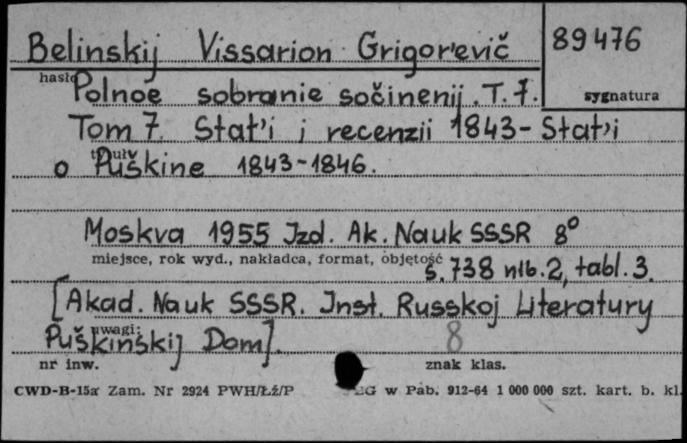 Belinskij Vissarion Grigor'evič 89476
hasło sygnatura
Polnoe sobranie sočinenij. T. 7.
Tom 7. Stat'i i recenzii 1843- Stat'i
tytuł
o Puškine 1843-1846.
Moskva 1955 Izd. Ak. Nauk SSSR 8°
miejsce, rok wyd., nakładca, format, objętość
s. 738 nlb. 2, tabl. 3.
[Akad. Nauk SSSR. Inst. Russkoj Literatury
uwagi:
Puškinskij Dom]. 8
nr inw. znak klas.
CWD-B-15a Zam. Nr 2924 PWH/Łź/P w Pab. 912-64 1 000 000 szt. kart. b. kl.